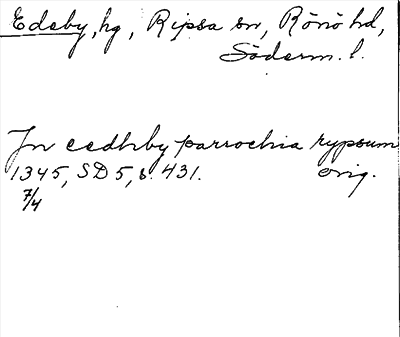 Edeby, hg, Ripsa sn, Rönö hd,
Söderm. l.
In eedhby parrochia rypsum
1345, SD 5, s. 431. orig.
7/4